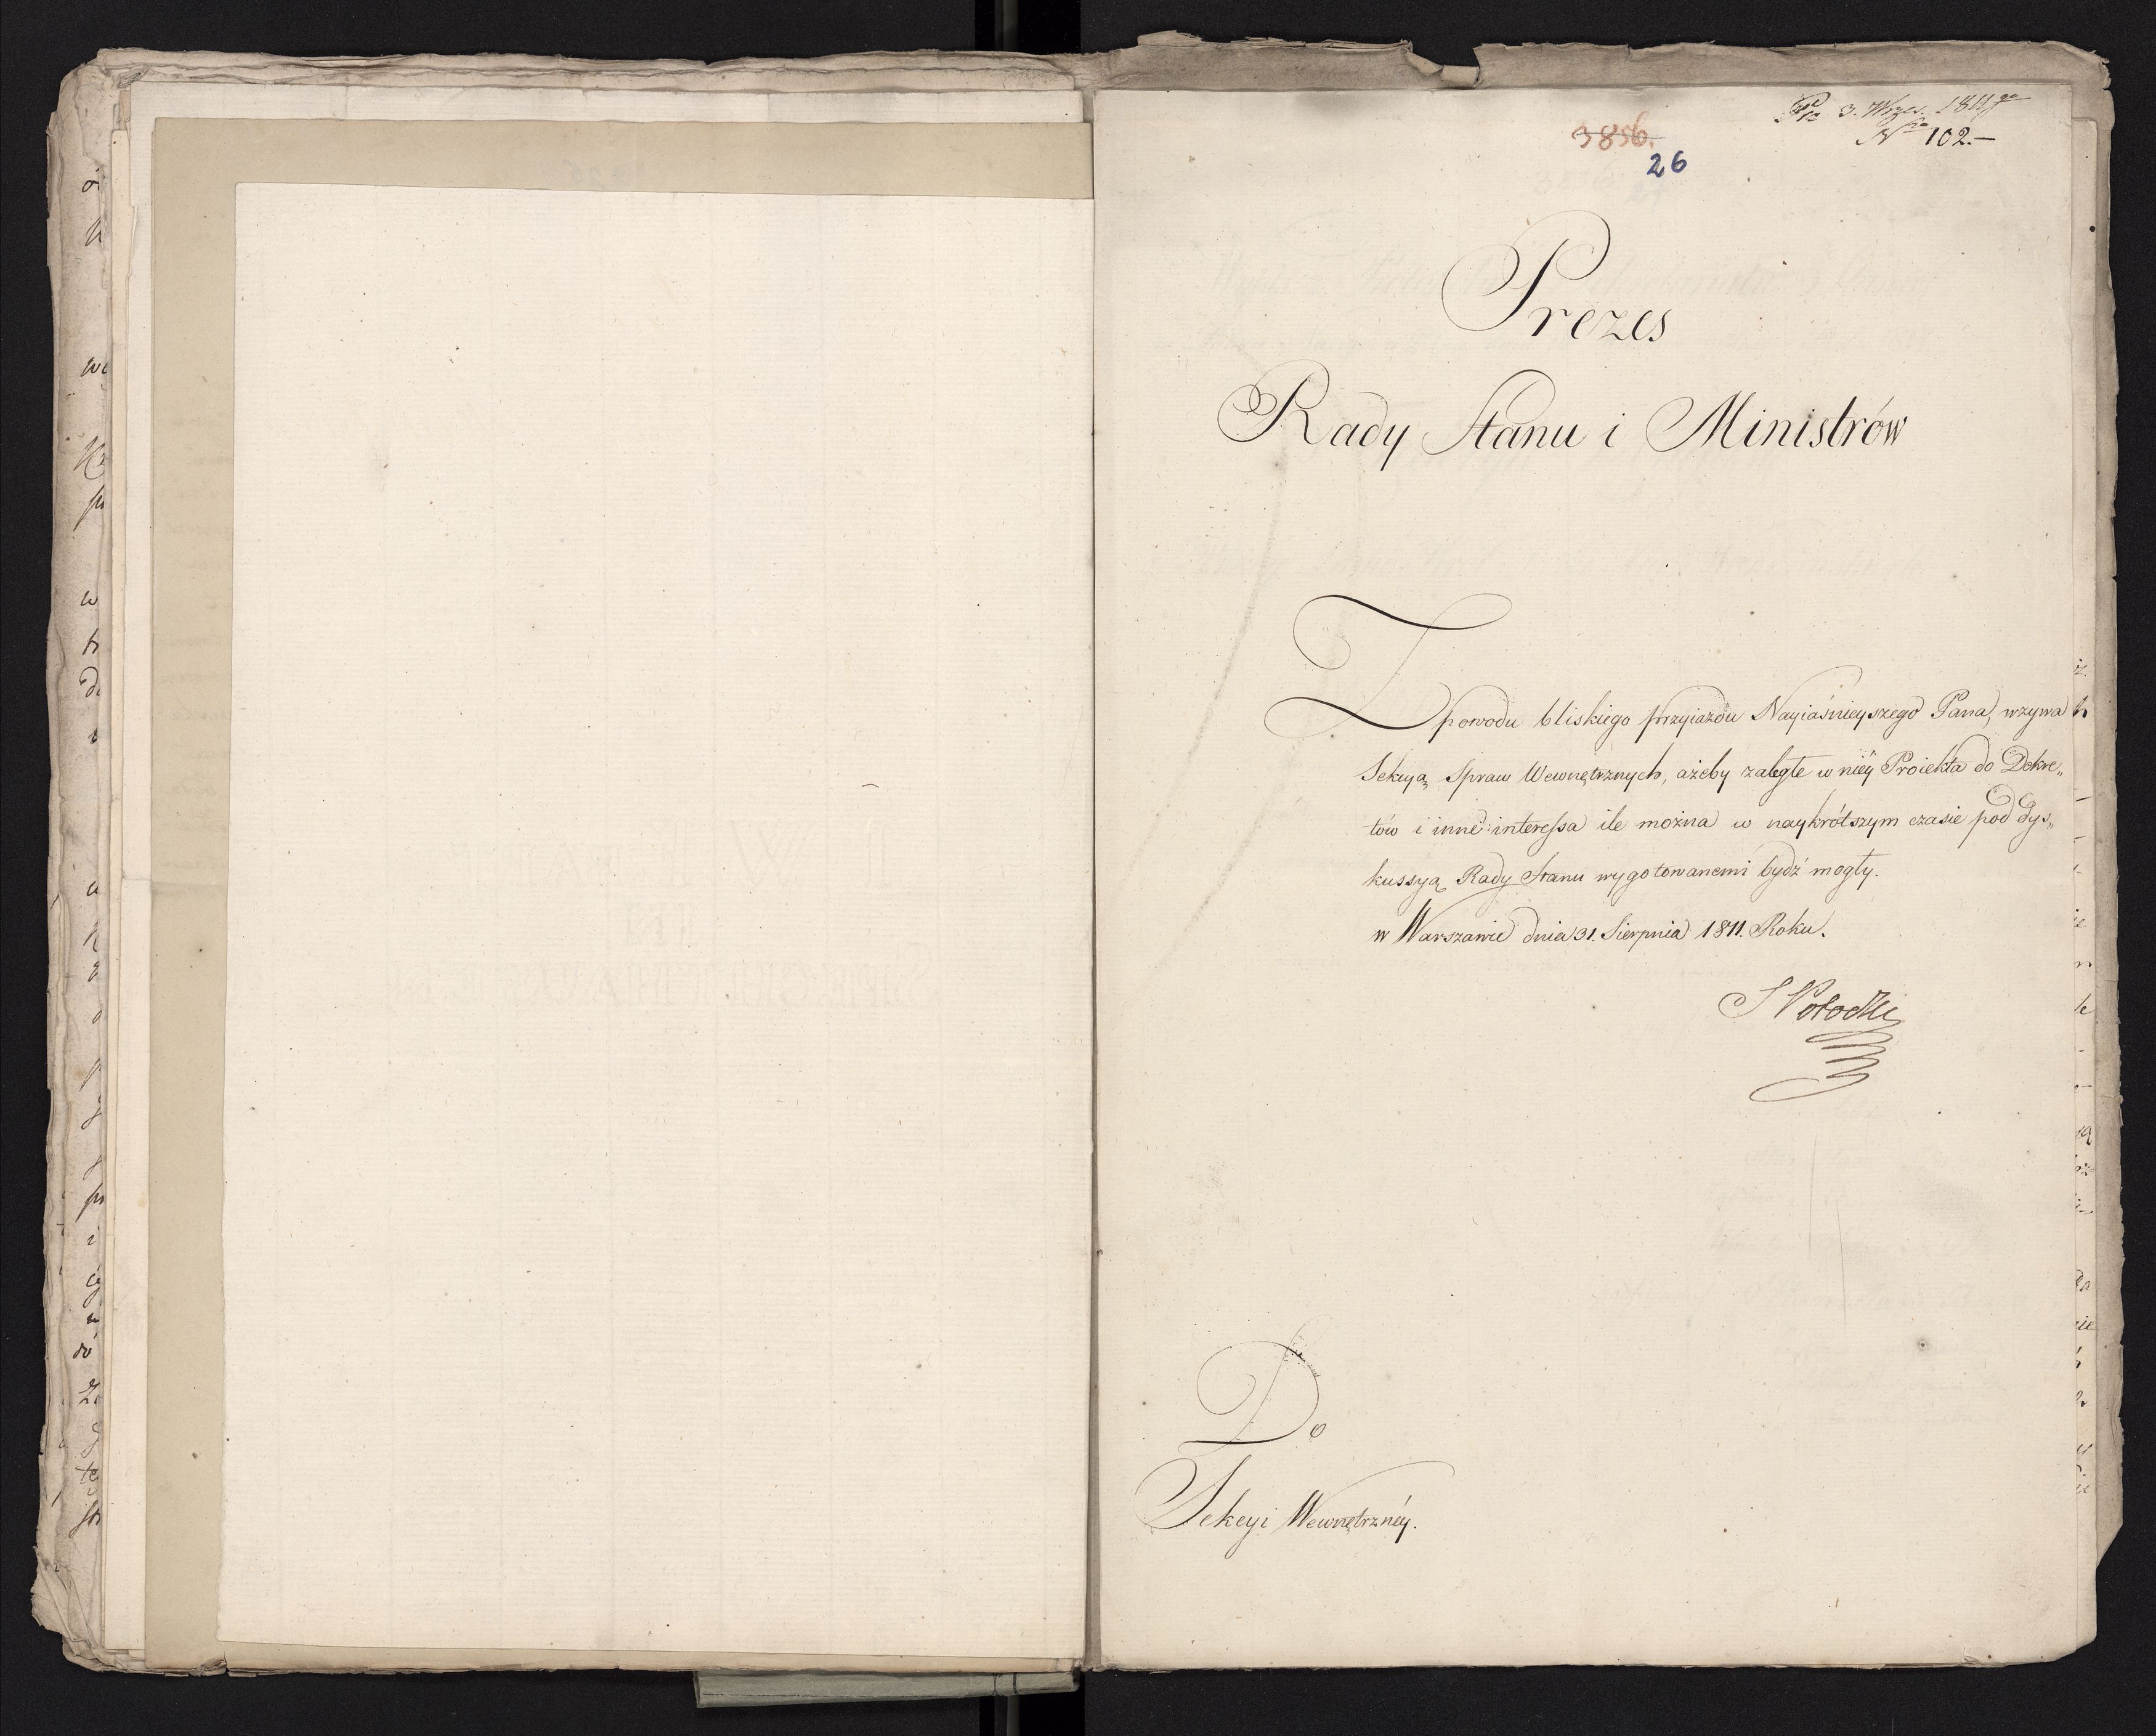 3. Wrzes. 1811go
3856.
Nro 102.—
26
Prezes
Rady Stanu i Ministrów
Z powodu bliskiego przyiazdu Nayiaśnieyszego Pana, wzywa
Sekcyą Spraw Wewnętrznych, ażeby zaległe w niey Proiekta do Dekre„
tów i inne interessa ile można w naykrótszym czasie pod dys„
kussyą Rady Stanu wygotowanemi bydź mogły.
w Warszawie dnia 31. Sierpnia 1811. Roku.
S Potocki
Do
Sekcyi Wewnętrznéy.